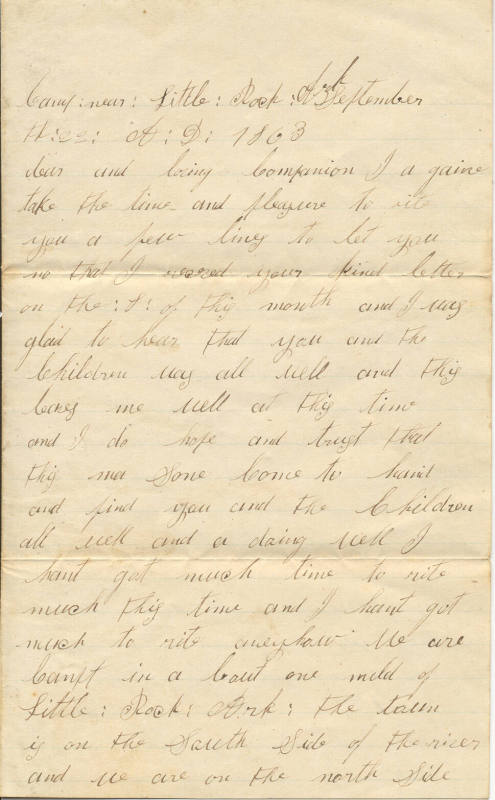 Camp: near: Little: Rock: Ark September
A: D: 1863
dear and loving Companion I a gaine
take the time and pleasure to rite
you a few lines to let you
no that I reseved your kind letter
on the of this month and I was
glad to hear that you and the
Children was all well and this
leaves me well at this time
and I do hope and trust that
this ma Sone Come to hand
and find you and the Children
all well and a doing well I
hant got much time to rite
much this time and I hant got
much to rite aneyhow We are
Campt in a bout one mild of
Little: Rock: Ark: the town
is on the South Side of the river
and we are on the north Side